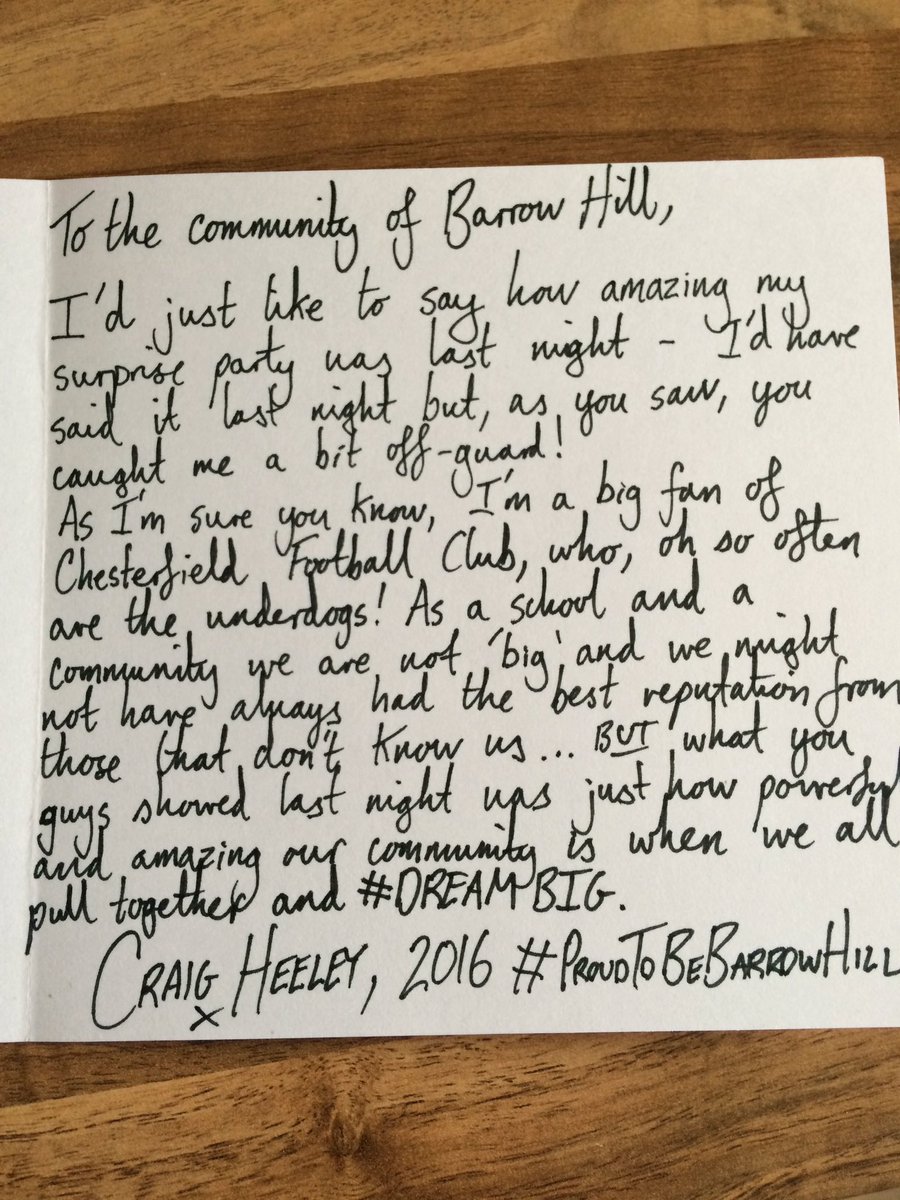 To the community of Barrow Hill,
I'd just like to say how amazing my
surprise party was last night - I'd have
said it last night but, as you saw, you
caught me a bit off-guard!
As I'm sure you know, I'm a big fan of
Chesterfield Football Club, who, oh so often
are the underdogs! As a school and a
community we are not 'big' and we might
not have always had the best reputation from
those that don't know us... BUT what you
guys showed last night was just how powerful
and amazing our community is when we all
pull together and #DREAMBIG.
CRAIG HEELEY, 2016 #PROUDTOBEBARROWHILL
x